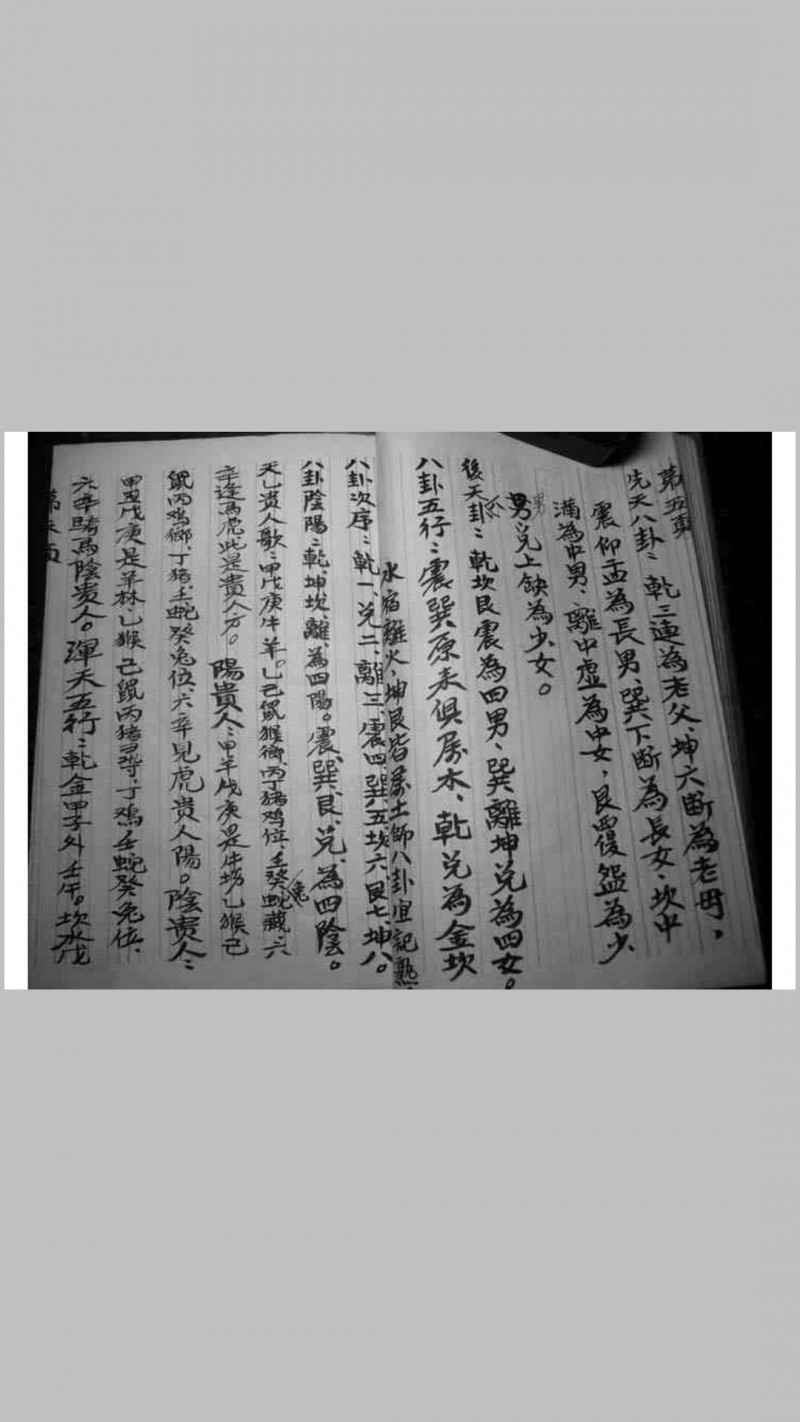 第五頁
先天八卦：乾三連為老父、坤六斷為老母，
震仰盂為長男、巽下斷為長女、坎中
滿為中男、離中虛為中女，艮覆盌為少
男
男兑上缺為少女。
後天卦：乾坎艮震為四男、巽離坤兑為四女。
八卦五行：震巽原来俱属木、乾兑為金坎
水宿離火、坤艮皆属土師八卦宜記熟．
八卦次序：乾一、兑二、離三、震四、巽五、坎六、艮七、坤八。
八卦陰陽：乾、坤、坎、離、為四陽。震、巽、艮、兑、為四陰。
天乙贵人歌：甲戊庚牛羊。乙己鼠猴鄉、丙丁猪鸡位、壬癸蛇兔藏、六
辛逢馬虎此是貴人方。陽貴人：甲羊戊庚是牛塲乙猴己
鼠丙鸡鄉、丁猪、壬蛇癸兔位、六辛見虎貴人陽。陰贵人：
甲丑戊庚是羊林、乙猴己鼠丙猪寻、丁鸡壬蛇癸兔位、
六辛騎馬陰贵人。渾天五行：乾金甲子外壬午。坎水戊